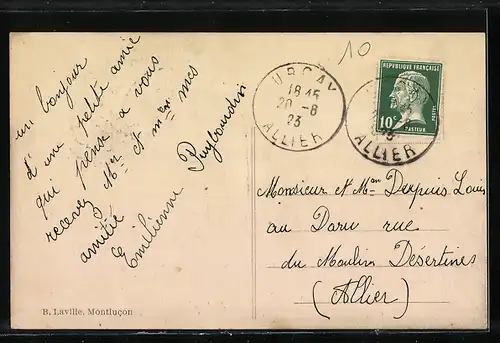 un bonjour
d'une petite amie
qui pense a vous
recevez Mr et mem mes
amitié
Emilienne Puybourdin
B. Laville, Montluçon
10
URÇAY
18 15
20 - 8
23
ALLIER
REPUBLIQUE FRANÇAISE
10c
PASTEUR
23
ALLIER
Monsieur et Mme Dexpuis Louis
au Daru rue
du Moulin Désertines
(Allier)